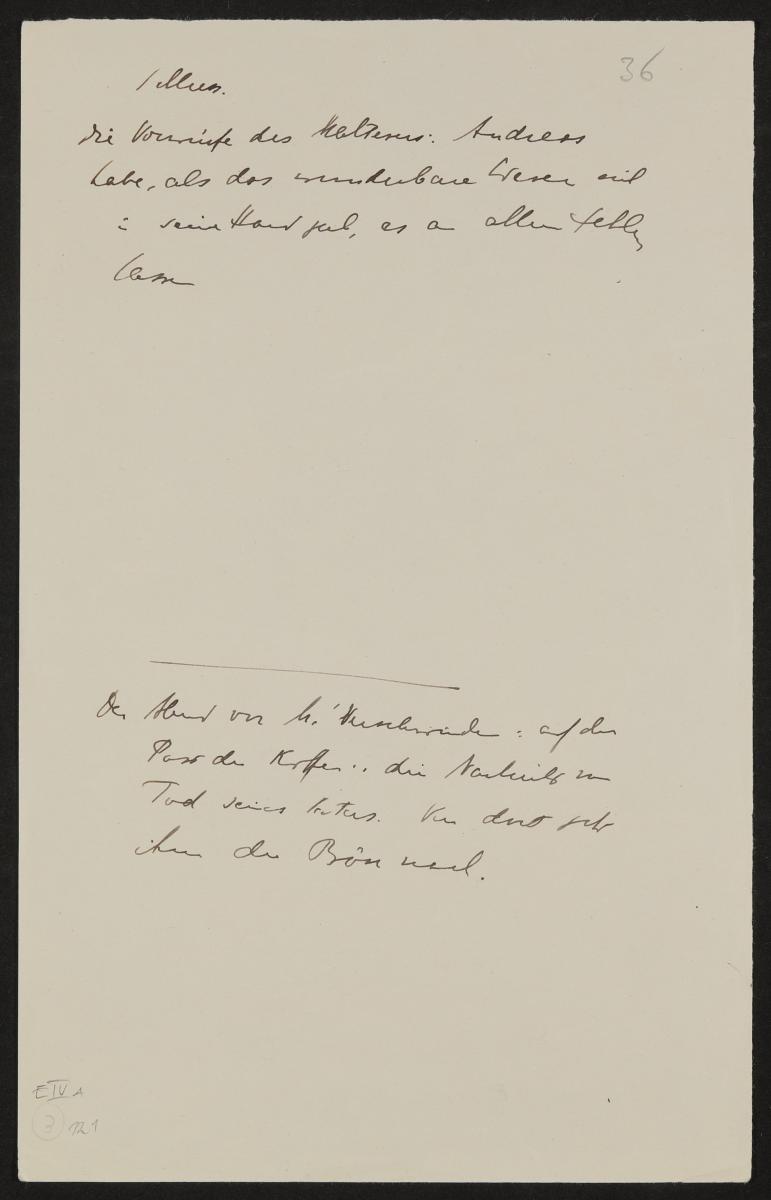 36
Schluss.
die Vorwürfe des Maltesers: Andreas
habe, als das wunderbare Wesen sich
in seine Hand gab, es an allem fehlen
lassen
Der Abend vor M.' Verschwinden: auf der
Post der Koffer: die Nachricht vom
Tod seines Vaters. Von dort geht
ihm der Böse nach.
E IV A
3 121